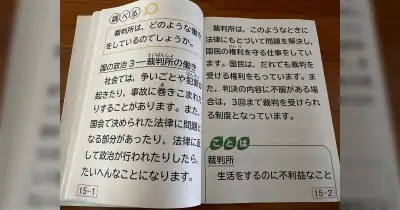 調べる
裁判所は、どのような働き
をしているのでしょうか。
国の政治 3―裁判所の働き
さいばんしょ
社会では、争いごとや犯罪が
起きたり、事故に巻きこまれた
りすることがあります。また、
国会で決められた法律に問題と
なる部分があったり、法律に反
して政治が行われたりしたら、
たいへんなことになります。
15-1
裁判所は、このようなときに
法律にもとづいて問題を解決し、
国民の権利を守る仕事をしてい
けんり
ます。国民は、だれでも裁判を
受ける権利をもっています。ま
た、判決の内容に不服がある場
合は、3回まで裁判を受けられ
る制度となっています。
ことば
裁判所
生活をするのに不利益なこと
15-2